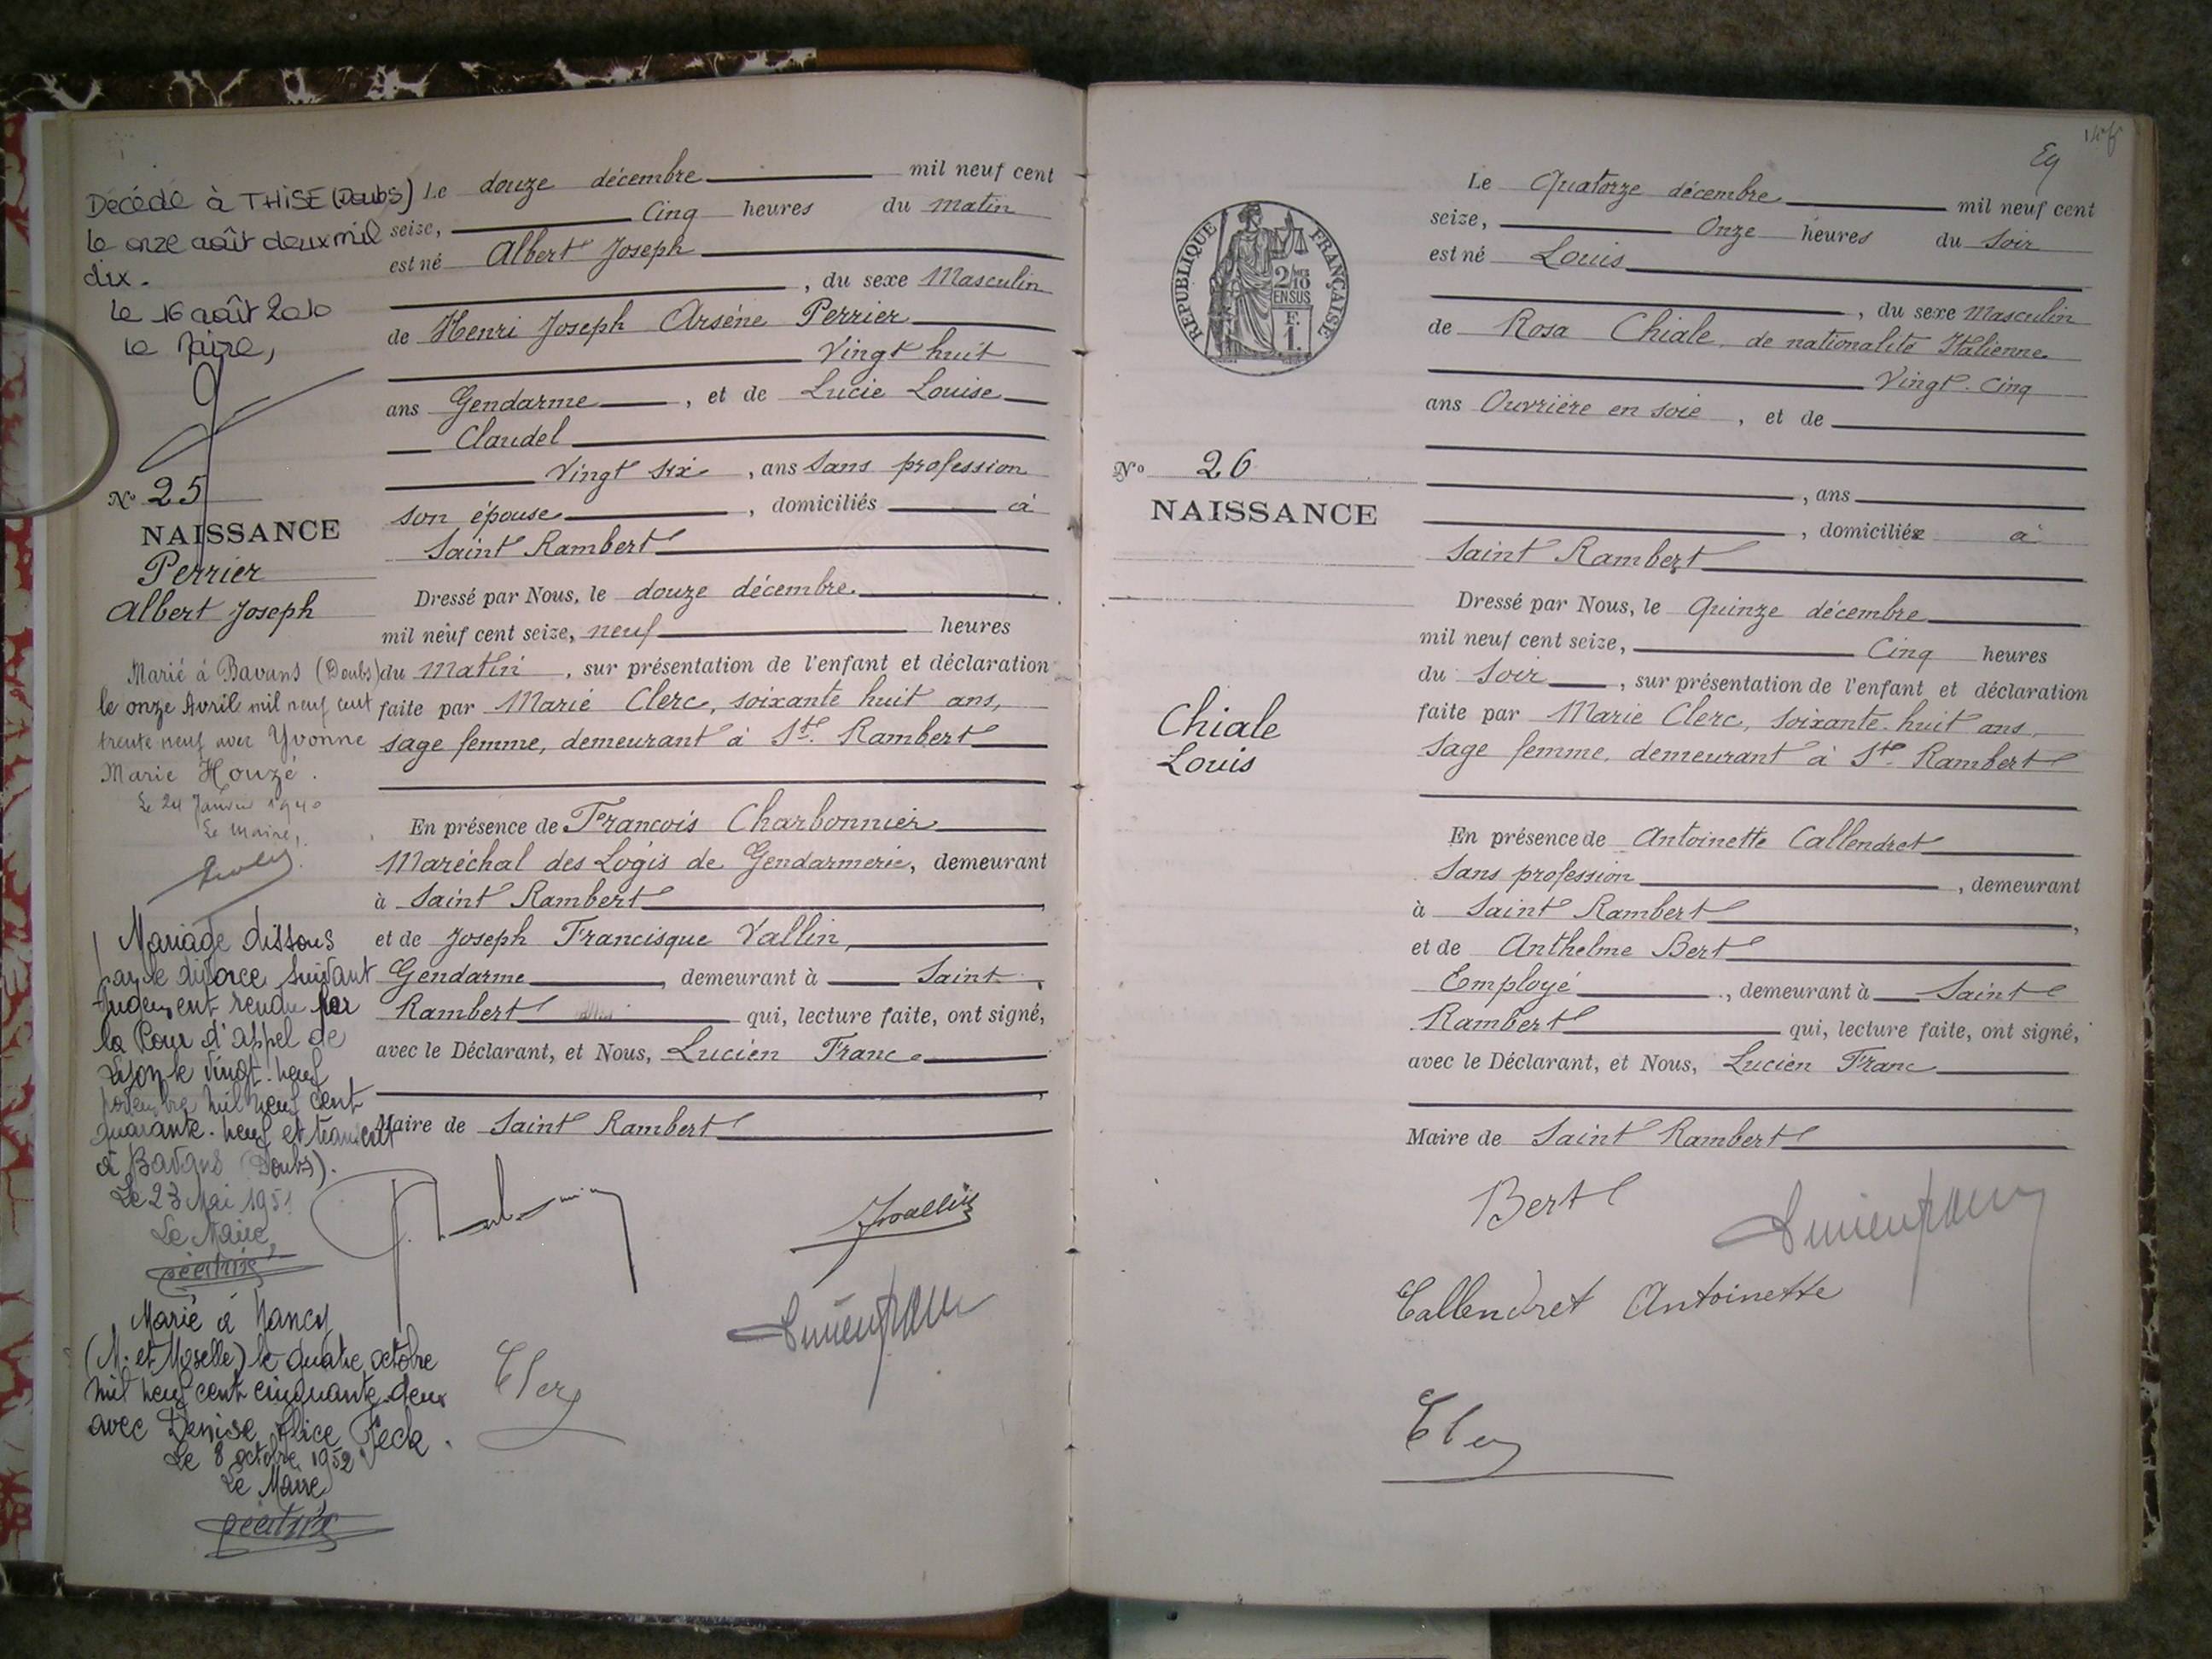 Décédé à THISE (Doubs)
le onze août deux mil
dix.
le 16 août 2010
le Maire,
No 25
NAISSANCE
Perrier
Albert Joseph
Marié à Bavans (Doubs)
le onze Avril mil neuf cent
trente neuf avec Yvonne
Marie Houzé.
Le 24 Janvier 1940
Le Maire,
Mariage dissous
par le divorce suivant
Jugement rendu par
la Cour d'appel de
le vingt-neuf
novembre mil neuf cent
quarante-neuf et transcrit
à Bavans (Doubs).
Le 23 Mai 1951
Le Maire,
Marié à Nancy
(M. et Moselle) le quatre octobre
mil neuf cent cinquante-deux
avec Denise Alice Feck.
Le 8 octobre 1952
Le Maire
Le douze décembre mil neuf cent
seize, Cinq heures du matin
est né Albert Joseph
, du sexe Masculin
de Henri Joseph Arsène Perrier
Vingt huit
ans Gendarme, et de Lucie Louise
Claudel
Vingt six, ans Sans profession
son épouse, domiciliés à
Saint Rambert
Dressé par Nous, le douze décembre
mil neuf cent seize, neuf heures
du Matin, sur présentation de l'enfant et déclaration
faite par Marie Clerc, soixante huit ans,
sage femme, demeurant à St. Rambert
En présence de François Charbonnier
Maréchal des Logis de Gendarmerie, demeurant
à Saint Rambert,
et de Joseph Francisque Vallin,
Gendarme, demeurant à Saint
Rambert qui, lecture faite, ont signé,
avec le Déclarant, et Nous, Lucien Franc
Maire de Saint Rambert
JVallin
Lucien Franc
Clerc
Eg
REPUBLIQUE FRANÇAISE
2/10
EN SUS
F.
1.
No 26
NAISSANCE
Chiale
Louis
Le Quatorze décembre mil neuf cent
seize, Onze heures du Soir
est né Louis
, du sexe Masculin
de Rosa Chiale de nationalité Italienne
Vingt-Cinq
ans Ouvrière en soie, et de
, ans
, domiciliée à
Saint Rambert
Dressé par Nous, le Quinze décembre
mil neuf cent seize, Cinq heures
du Soir, sur présentation de l'enfant et déclaration
faite par Marie Clerc, soixante-huit ans,
Sage femme, demeurant à St. Rambert
En présence de Antoinette Callendret
Sans profession, demeurant
à Saint Rambert,
et de Anthelme Bert
Employé, demeurant à Saint
Rambert qui, lecture faite, ont signé,
avec le Déclarant, et Nous, Lucien Franc
Maire de Saint Rambert
Bert
Lucien Franc
Callendret Antoinette
Clerc